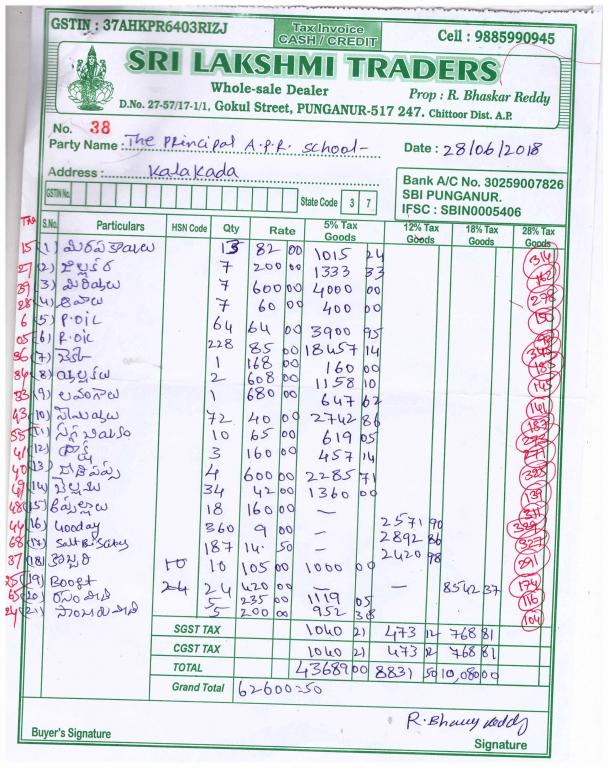 GSTIN : 37AHKPR6403RIZJ
Tax Invoice
CASH / CREDIT
Cell : 9885990945
SRI LAKSHMI TRADERS
Whole-sale Dealer
Prop : R. Bhaskar Reddy
D.No. 27-57/17-1/1, Gokul Street, PUNGANUR-517 247. Chittoor Dist. A.P.
No. 38
Party Name : The Principal A.P.R. School-
Date : 28/06/2018
Address : Kalakada
Bank A/C No. 30259007826
SBI PUNGANUR.
IFSC : SBIN0005406
GSTIN No.
State Code 3 7
S.No. Particulars HSN Code Qty Rate 5% Tax Goods 12% Tax Goods 18% Tax Goods 28% Tax Goods
15 (1) మిరపకాయలు 13 82 00 1015 24 314
27 (2) జీలకర 7 200 00 1333 33 162
39 (3) మిరియాలు 7 600 00 4000 00 278
28 (4) ఆవాలు 7 60 00 400 00
6 (5) P.oil 64 64 00 3900 95
05 (6) R.oil 228 85 00 18457 14
36 (7) 1 168 00 160 00
(8) యాలకులు 2 608 00 1158 10 145
33 (9) లవంగాలు 1 680 00 647 62 141
43 (10) సేమ్యాలు 72 40 00 2742 86 187
(11) 10 65 00 619 05
41 (12) 3 160 00 457 14 271
40 (13) 4 600 00 2285 71 325
(14) బెల్లము 34 42 00 1360 00 139
48 (15) 18 160 00 — 2571 90 311
44 (16) Gooday 360 9 00 — 2892 86
68 (17) 187 14 50 — 2420 98 327
37 (18) కొబ్బరి 10 10 105 00 1000 00 291
25 (19) Boost 24 24 420 00 — — 8542 37 174
65 (20) రసం పొడి 5 235 00 1119 05 116
24 (21) సాంబారు పొడి 5 200 00 952 38 104
SGST TAX 1040 21 473 12 768 81
CGST TAX 1040 21 473 12 768 81
TOTAL 43689 00 8831 50 10,080 00
Grand Total 62600=50
Buyer's Signature
Signature